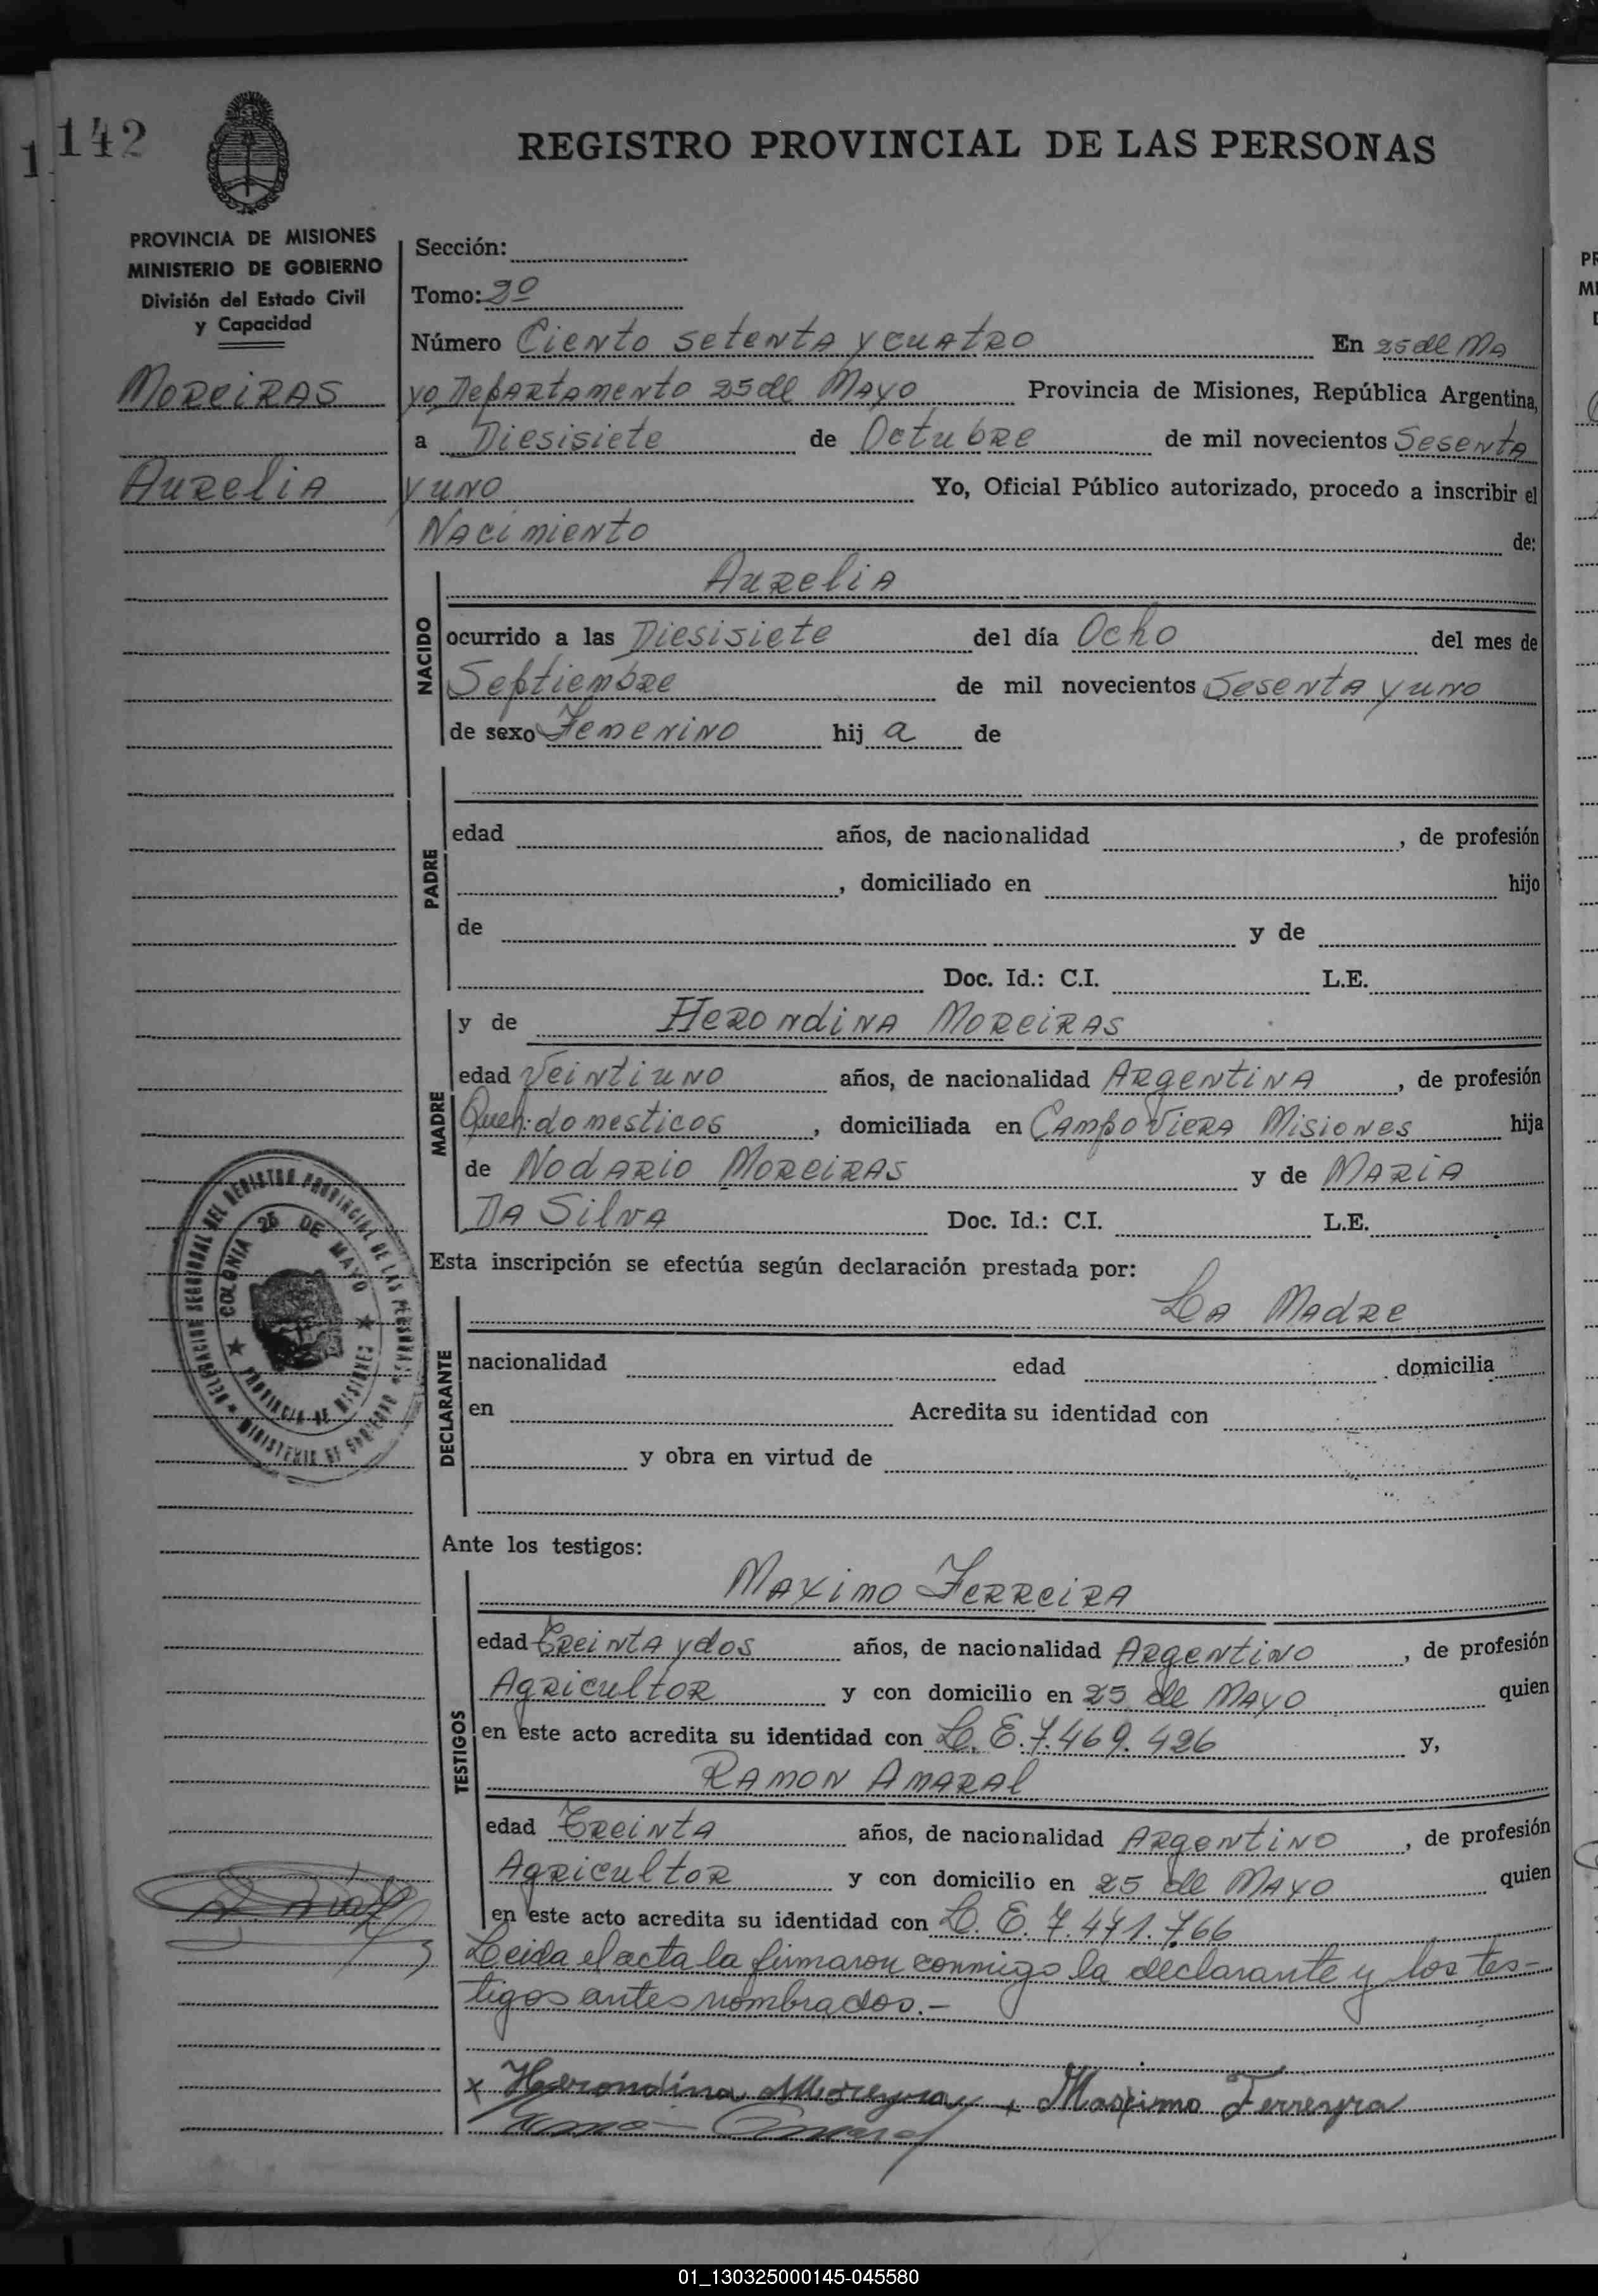 142
1
REGISTRO PROVINCIAL DE LAS PERSONAS
PROVINCIA DE MISIONES
MINISTERIO DE GOBIERNO
División del Estado Civil
y Capacidad
MOREIRAS
AURELIA
Sección:
Tomo: 2º
Número Ciento setenta y cuatro En 25 de Ma
yo Departamento 25 de Mayo Provincia de Misiones, República Argentina,
a Diesisiete de Octubre de mil novecientos Sesenta
y uno Yo, Oficial Público autorizado, procedo a inscribir el
Nacimiento de:
NACIDO
Aurelia
ocurrido a las Diesisiete del día Ocho del mes de
Septiembre de mil novecientos Sesenta y uno
de sexo Femenino hij a de
PADRE
edad años, de nacionalidad , de profesión
, domiciliado en hijo
de y de
Doc. Id.: C.I. L.E.
MADRE
y de Herondina Moreiras
edad Veintiuno años, de nacionalidad Argentina , de profesión
Queh: domesticos , domiciliada en Campo Viera Misiones hija
de Nodario Moreiras y de Maria
Da Silva Doc. Id.: C.I. L.E.
Esta inscripción se efectúa según declaración prestada por:
DECLARANTE
La Madre
nacionalidad edad domicilia
en Acredita su identidad con
y obra en virtud de
Ante los testigos:
TESTIGOS
Maximo Ferreira
edad Treinta y dos años, de nacionalidad Argentino , de profesión
Agricultor y con domicilio en 25 de Mayo quien
en este acto acredita su identidad con L. E. 7.469.426 y,
Ramon Amaral
edad Treinta años, de nacionalidad Argentino , de profesión
Agricultor y con domicilio en 25 de Mayo quien
en este acto acredita su identidad con L. E. 7.471.766
Leida el acta la firmaron conmigo la declarante y los tes-
tigos antes nombrados.-
x Herondina Moreyra + Maximo Ferreyra
DELEGACION SECCIONAL DEL REGISTRO PROVINCIAL DE LAS PERSONAS
MINISTERIO DE GOBIERNO
COLONIA 25 DE MAYO
PROVINCIA DE MISIONES
PR
MI
01_130325000145-045580